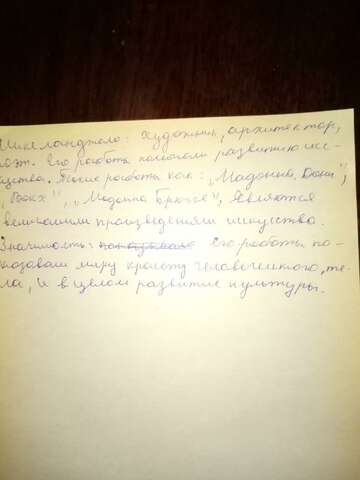 Микеланджело: художник, архитектор,
поэт. Его работы помогали развитию ис-
кусства. Такие работы как: „Мадонна Дони",
„Вакх", „Мадонна Брюгге", являются
величайшими произведениями искусства.
Значимость: показывали Его работы по-
казовали миру красоту человеческого, те-
ла, и в целом развитие культуры.